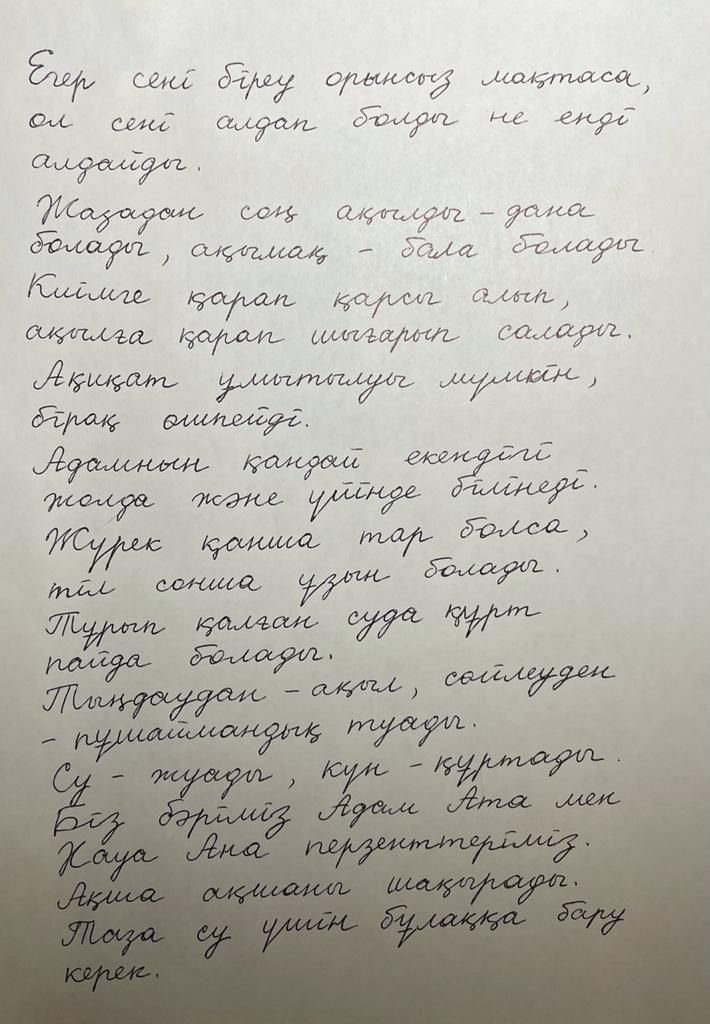 Егер сені біреу орынсыз мақтаса,
ол сені алдап болды не енді
алдайды.
Жазадан соң ақылды - дана
болады, ақымақ - бала болады.
Киімге қарап қарсы алып,
ақылға қарап шығарып салады.
Ақиқат ұмытылуы мүмкін,
бірақ өшпейді.
Адамнын қандай екендігі
жолда және үйінде білінеді.
Жүрек қанша тар болса,
тіл сонша ұзын болады.
Тұрып қалған суда құрт
пайда болады.
Тыңдаудан - ақыл, сөйлеуден
- пұшаймандық туады.
Су - жуады, күн - құртады.
Біз бәріміз Адам Ата мен
Хауа Ана перзенттеріміз.
Ақша ақшаны шақырады.
Таза су үшін бұлаққа бару
керек.